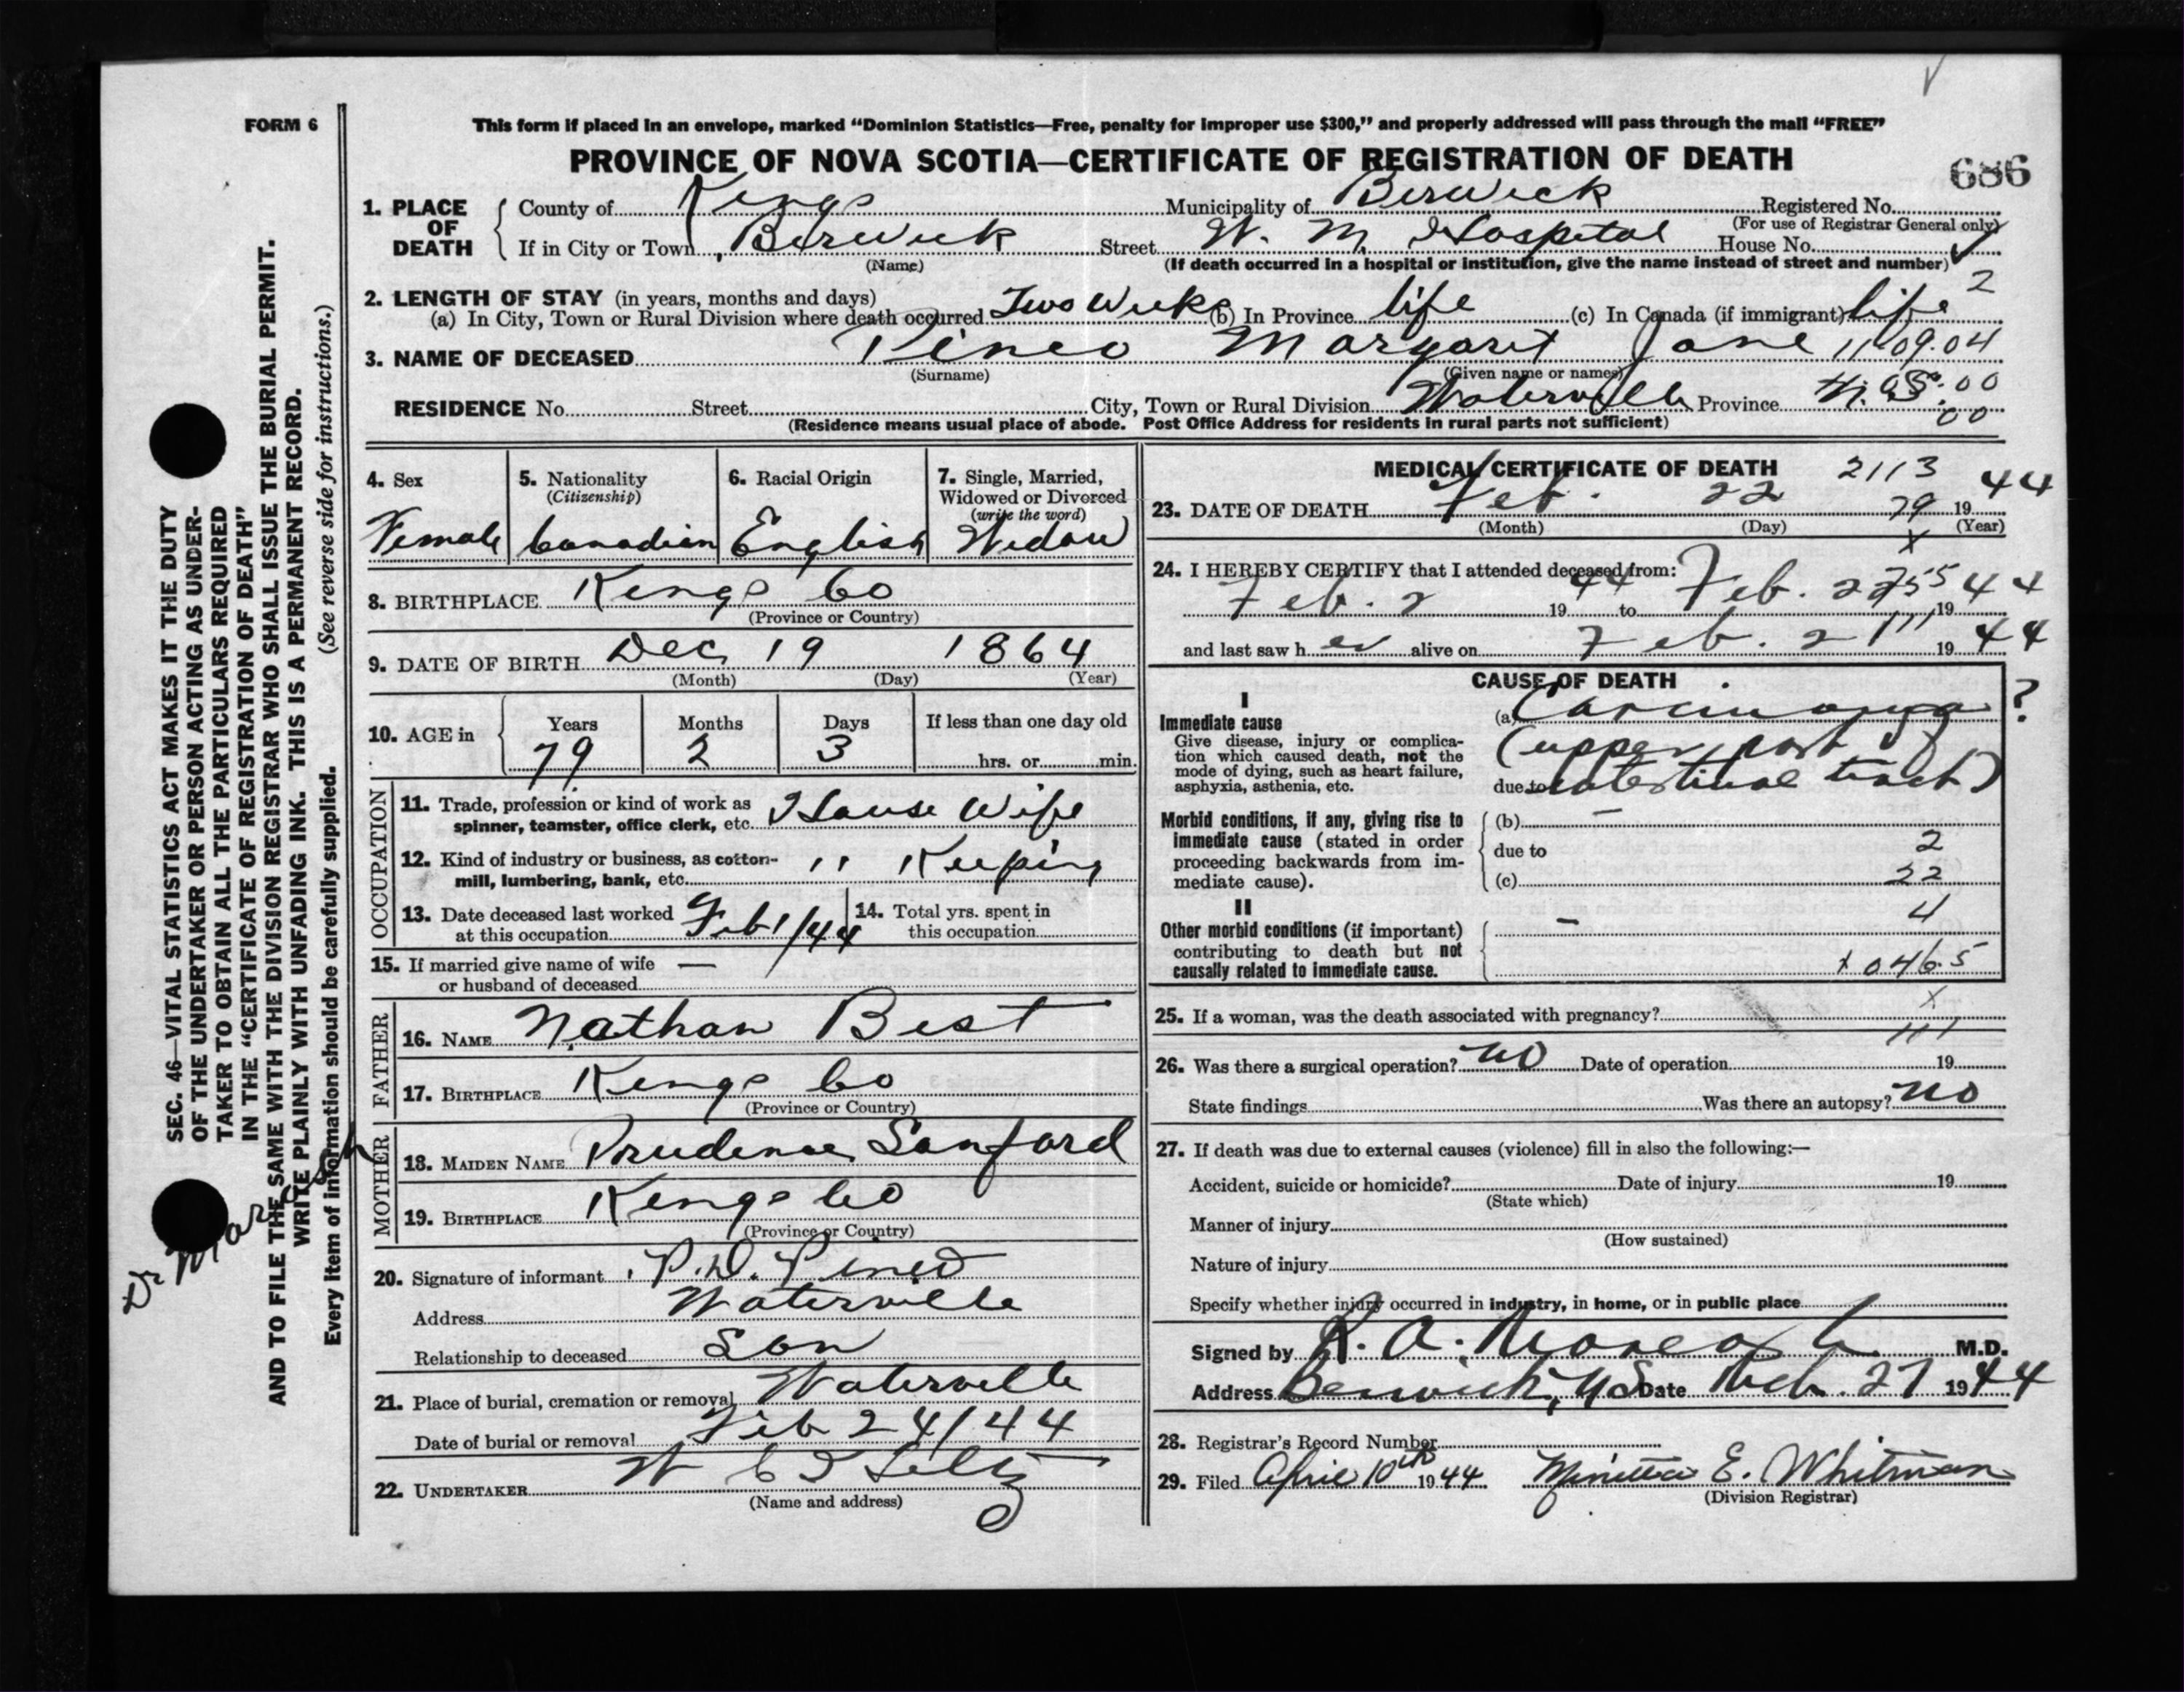 FORM 6
This form if placed in an envelope, marked “Dominion Statistics—Free, penalty for improper use $300,” and properly addressed will pass through the mail “FREE”
PROVINCE OF NOVA SCOTIA—CERTIFICATE OF REGISTRATION OF DEATH
686
1. PLACE OF DEATH
County of Kings Municipality of Berwick Registered No.
(For use of Registrar General only)
If in City or Town, Berwick Street W. M. Hospital House No.
(Name) (If death occurred in a hospital or institution, give the name instead of street and number)
2. LENGTH OF STAY (in years, months and days) 2
(a) In City, Town or Rural Division where death occurred Two Weeks (b) In Province life (c) In Canada (if immigrant) life
3. NAME OF DECEASED Pineo Margaret Jane 11 09.04
(Surname) (Given name or names)
RESIDENCE No. Street City, Town or Rural Division Waterville Province N.S. 00
00
(Residence means usual place of abode. Post Office Address for residents in rural parts not sufficient)
4. Sex
Female
5. Nationality
(Citizenship)
Canadian
6. Racial Origin
English
7. Single, Married,
Widowed or Divorced
(write the word)
Widow
8. BIRTHPLACE Kings Co
(Province or Country)
9. DATE OF BIRTH Dec 19 1864
(Month) (Day) (Year)
10. AGE in
Years Months Days If less than one day old
79 2 3 hrs. or min.
OCCUPATION
11. Trade, profession or kind of work as
spinner, teamster, office clerk, etc. House Wife
12. Kind of industry or business, as cotton-
mill, lumbering, bank, etc. " Keeping
13. Date deceased last worked
at this occupation Feb 1/44
14. Total yrs. spent in
this occupation
15. If married give name of wife —
or husband of deceased
FATHER
16. NAME Nathan Best
17. BIRTHPLACE Kings Co
(Province or Country)
MOTHER
18. MAIDEN NAME Prudence Sanford
19. BIRTHPLACE Kings Co
(Province or Country)
20. Signature of informant P.W. Pineo
Address Waterville
Relationship to deceased Son
21. Place of burial, cremation or removal Waterville
Date of burial or removal Feb 24/44
22. UNDERTAKER
(Name and address)
MEDICAL CERTIFICATE OF DEATH 2113
23. DATE OF DEATH Feb. 22 79 1944
(Month) (Day) (Year)
x
24. I HEREBY CERTIFY that I attended deceased from:
Feb. 2 1944 to Feb. 22 55 1944
and last saw her alive on Feb. 21 111 1944
CAUSE OF DEATH
I
Immediate cause
Give disease, injury or complica-
tion which caused death, not the
mode of dying, such as heart failure,
asphyxia, asthenia, etc.
(a) Carcinoma ?
(upper part of
due to intestinal tract)
Morbid conditions, if any, giving rise to
immediate cause (stated in order
proceeding backwards from im-
mediate cause).
(b) —
due to 2
(c) 22
II
Other morbid conditions (if important)
contributing to death but not
causally related to immediate cause.
— 4
x 046.5
x
25. If a woman, was the death associated with pregnancy?
111
26. Was there a surgical operation? no Date of operation 19
State findings Was there an autopsy? no
27. If death was due to external causes (violence) fill in also the following:—
Accident, suicide or homicide? Date of injury 19
(State which)
Manner of injury
(How sustained)
Nature of injury
Specify whether injury occurred in industry, in home, or in public place
Signed by R. A. M.D.
Address Berwick, N.S. Date 27 1944
28. Registrar's Record Number
29. Filed April 10th 1944 E. Whitman
(Division Registrar)
SEC. 46—VITAL STATISTICS ACT MAKES IT THE DUTY
OF THE UNDERTAKER OR PERSON ACTING AS UNDER-
TAKER TO OBTAIN ALL THE PARTICULARS REQUIRED
IN THE “CERTIFICATE OF REGISTRATION OF DEATH”
AND TO FILE THE SAME WITH THE DIVISION REGISTRAR WHO SHALL ISSUE THE BURIAL PERMIT.
WRITE PLAINLY WITH UNFADING INK. THIS IS A PERMANENT RECORD.
Every item of information should be carefully supplied. (See reverse side for instructions.)
Dr